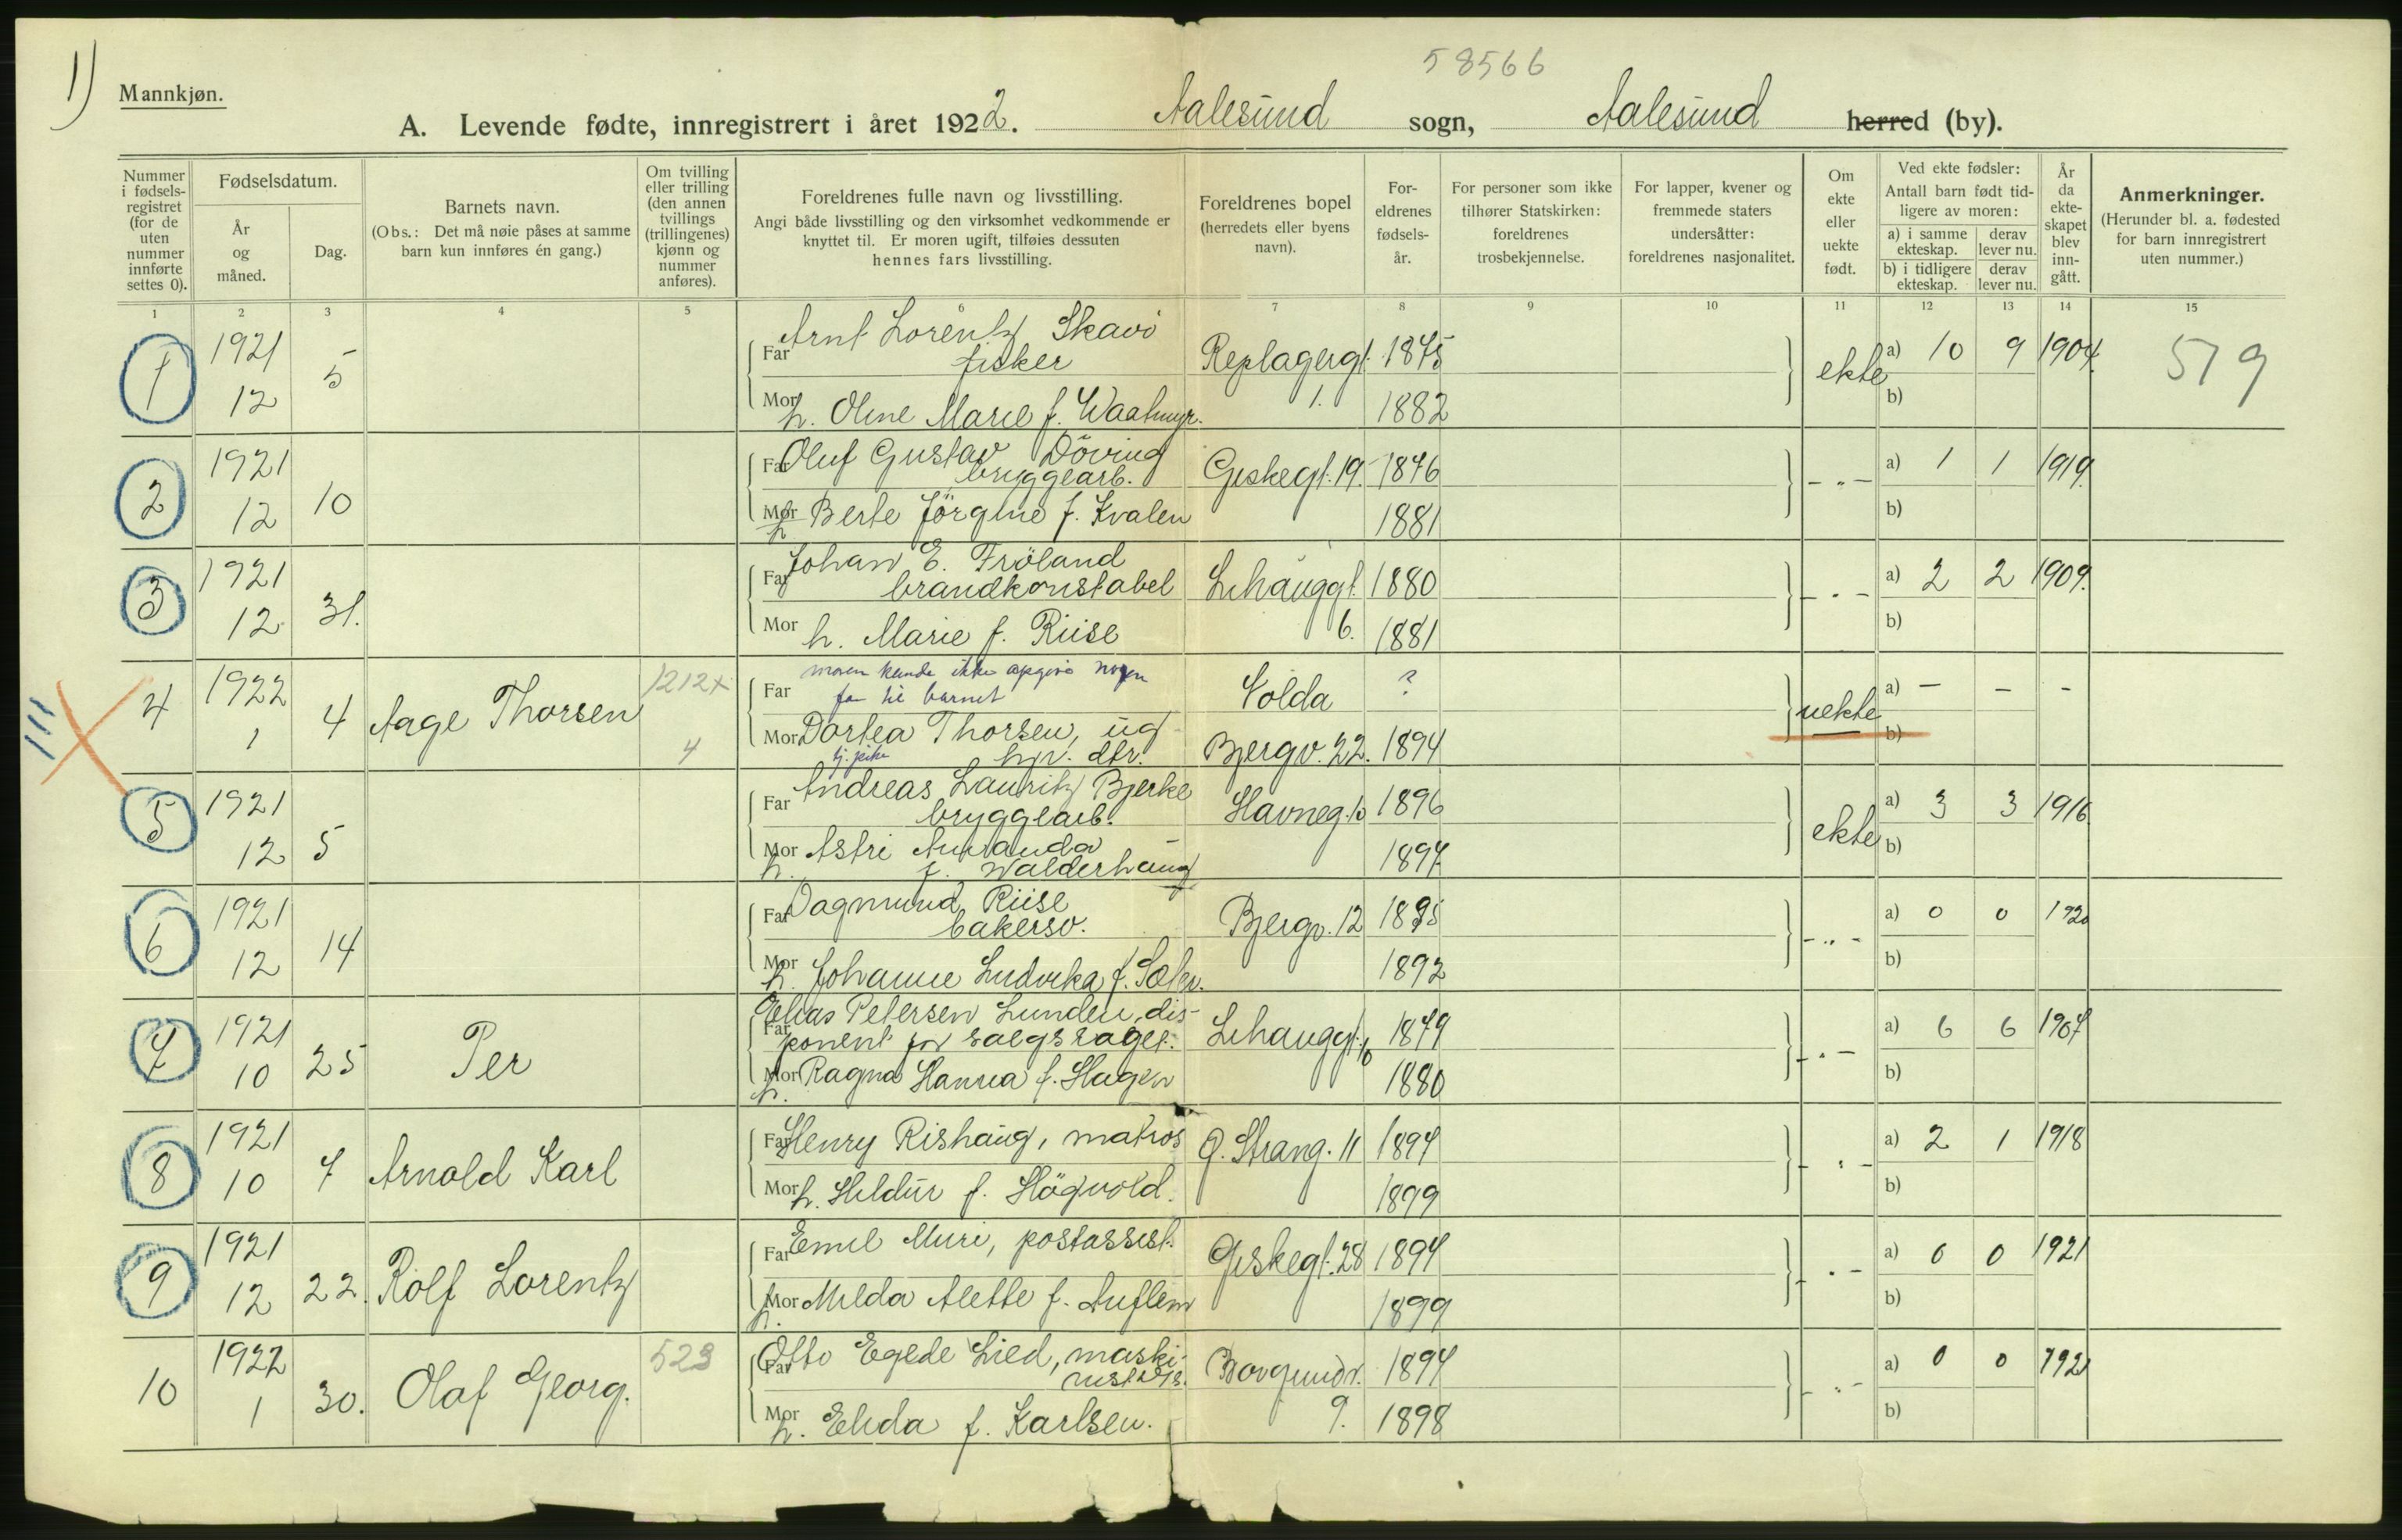 1)
58566
Mannkjøn.
A. Levende fødte, innregistrert i året 1922. Aalesund sogn, Aalesund herred (by).
Nummer i fødsels-registret (for de uten nummer innførte settes 0).
Fødselsdatum.
År og måned.
Dag.
Barnets navn.
(Obs.: Det må nøie påses at samme barn kun innføres én gang.)
Om tvilling eller trilling (den annen tvillings (trillingenes) kjønn og nummer anføres).
Foreldrenes fulle navn og livsstilling.
Angi både livsstilling og den virksomhet vedkommende er knyttet til. Er moren ugift, tilføies dessuten hennes fars livsstilling.
Foreldrenes bopel (herredets eller byens navn).
For-eldrenes fødsels-år.
For personer som ikke tilhører Statskirken: foreldrenes trosbekjennelse.
For lapper, kvener og fremmede staters undersåtter: foreldrenes nasjonalitet.
Om ekte eller uekte født.
Ved ekte fødsler: Antall barn født tid-ligere av moren:
a) i samme ekteskap. derav lever nu.
b) i tidligere ekteskap. derav lever nu.
År da ekte-skapet blev inn-gått.
Anmerkninger.
(Herunder bl. a. fødested for barn innregistrert uten nummer.)
1 2 3 4 5 6 7 8 9 10 11 12 13 14 15
1 1921 12 5 Far Arnt Lorentz Skavø fisker Replagergt. 1. 1875 ekte a) 10 9 1904. 519
Mor h. Oline Marie f. Waatmyr. 1882 b)
2 1921 12 10 Far Oluf Gustav Døving bryggearb. Giskegt. 19. 1876 - „ - a) 1 1 1919.
Mor h Berte Jörgine f. Kvalen 1881 b)
3 1921 12 31. Far Johan E. Fröland brandkonstabel Lihauggt. 6. 1880 - „ - a) 2 2 1909.
Mor h. Marie f. Riise 1881 b)
4 1922 1 4 Aage Thorsen 1212+ 4 Far moren kunde ikke opgive nogen far til barnet Volda ? uekte a) - - -
Mor Dortea Thorsen, ug tj. pike Bjergv. 22. 1894 b)
5 1921 12 5 Far Andreas Lauritz Bjerke bryggearb. Havneg. 10 1896 ekte a) 3 3 1916
Mor h. Astri Amanda f. Walderhaug 1897 b)
6 1921 12 14 Far Dagmund Riise bakersv. Bjergv. 12 1895 - „ - a) 0 0 1920
Mor h. Johanne Ludvika f. 1892 b)
7 1921 10 25 Per Far Elias Petersen Lunden, dis-ponent for salgslaget. Lihauggt. 10 1879 - „ - a) 6 6 1907
Mor h. Ragna Hanna f. Hagen 1880 b)
8 1921 10 7 Arnold Karl Far Henry Rishaug, matros Ø. Strang. 11 1897 - „ - a) 2 1 1918
Mor h. Hildur f. Högvold. 1899 b)
9 1921 12 22. Rolf Lorentz Far Emil Muri, postassist. Giskegt. 28 1894 - „ - a) 0 0 1921
Mor h. Milda Alette f. Auflem 1899 b)
10 1922 1 30. Olaf Georg. 523 Far Otto Egede Lied, maski-nist Borgundv. 9. 1894 - „ - a) 0 0 1921
Mor h. Elida f. Karlsen. 1898 b)